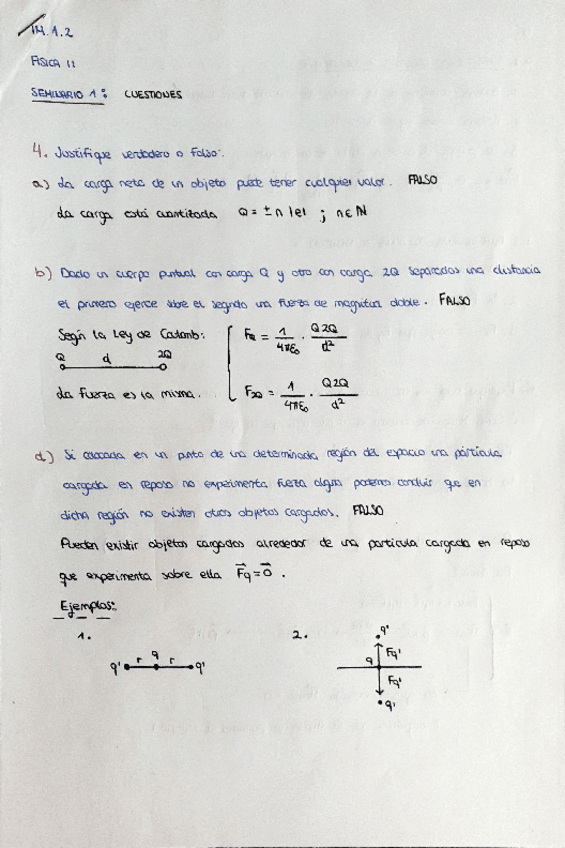 IM.1.2
FÍSICA II
SEMINARIO 1: CUESTIONES
4. Justifique verdadero o falso:
a) La carga neta de un objeto puede tener cualquier valor. FALSO
La carga está cuantizada Q = ± n |e| ; n ∈ N
b) Dado un cuerpo puntual con carga Q y otro con carga 2Q separados una distancia
el primero ejerce sobre el segundo una fuerza de magnitud doble. FALSO
Según la Ley de Coulomb: F_Q = 1/4πε₀ · Q2Q/d²
Q d 2Q
La fuerza es la misma. F_2Q = 1/4πε₀ · Q2Q/d²
d) Si colocada en un punto de una determinada región del espacio una partícula
cargada en reposo no experimenta fuerza alguna podemos concluir que en
dicha región no existen otros objetos cargados. FALSO
Pueden existir objetos cargados alrededor de una partícula cargada en reposo
que experimenta sobre ella F⃗q = 0⃗ .
Ejemplos:
1. 2.
q' r q r q'
q'
q Fq'
Fq'
q'